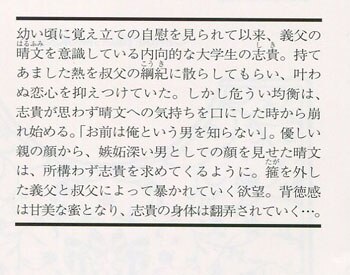 幼い頃に覚え立ての自慰を見られて以来、義父の
はるふみ しき
晴文を意識している内向的な大学生の志貴。持て
こうき
あました熱を叔父の綱紀に散らしてもらい、叶わ
ぬ恋心を抑えつけていた。しかし危うい均衡は、
志貴が思わず晴文への気持ちを口にした時から崩
れ始める。「お前は俺という男を知らない」。優しい
親の顔から、嫉妬深い男としての顔を見せた晴文
たが
は、所構わず志貴を求めてくるように。箍を外し
た義父と叔父によって暴かれていく欲望。背徳感
は甘美な蜜となり、志貴の身体は翻弄されていく…。